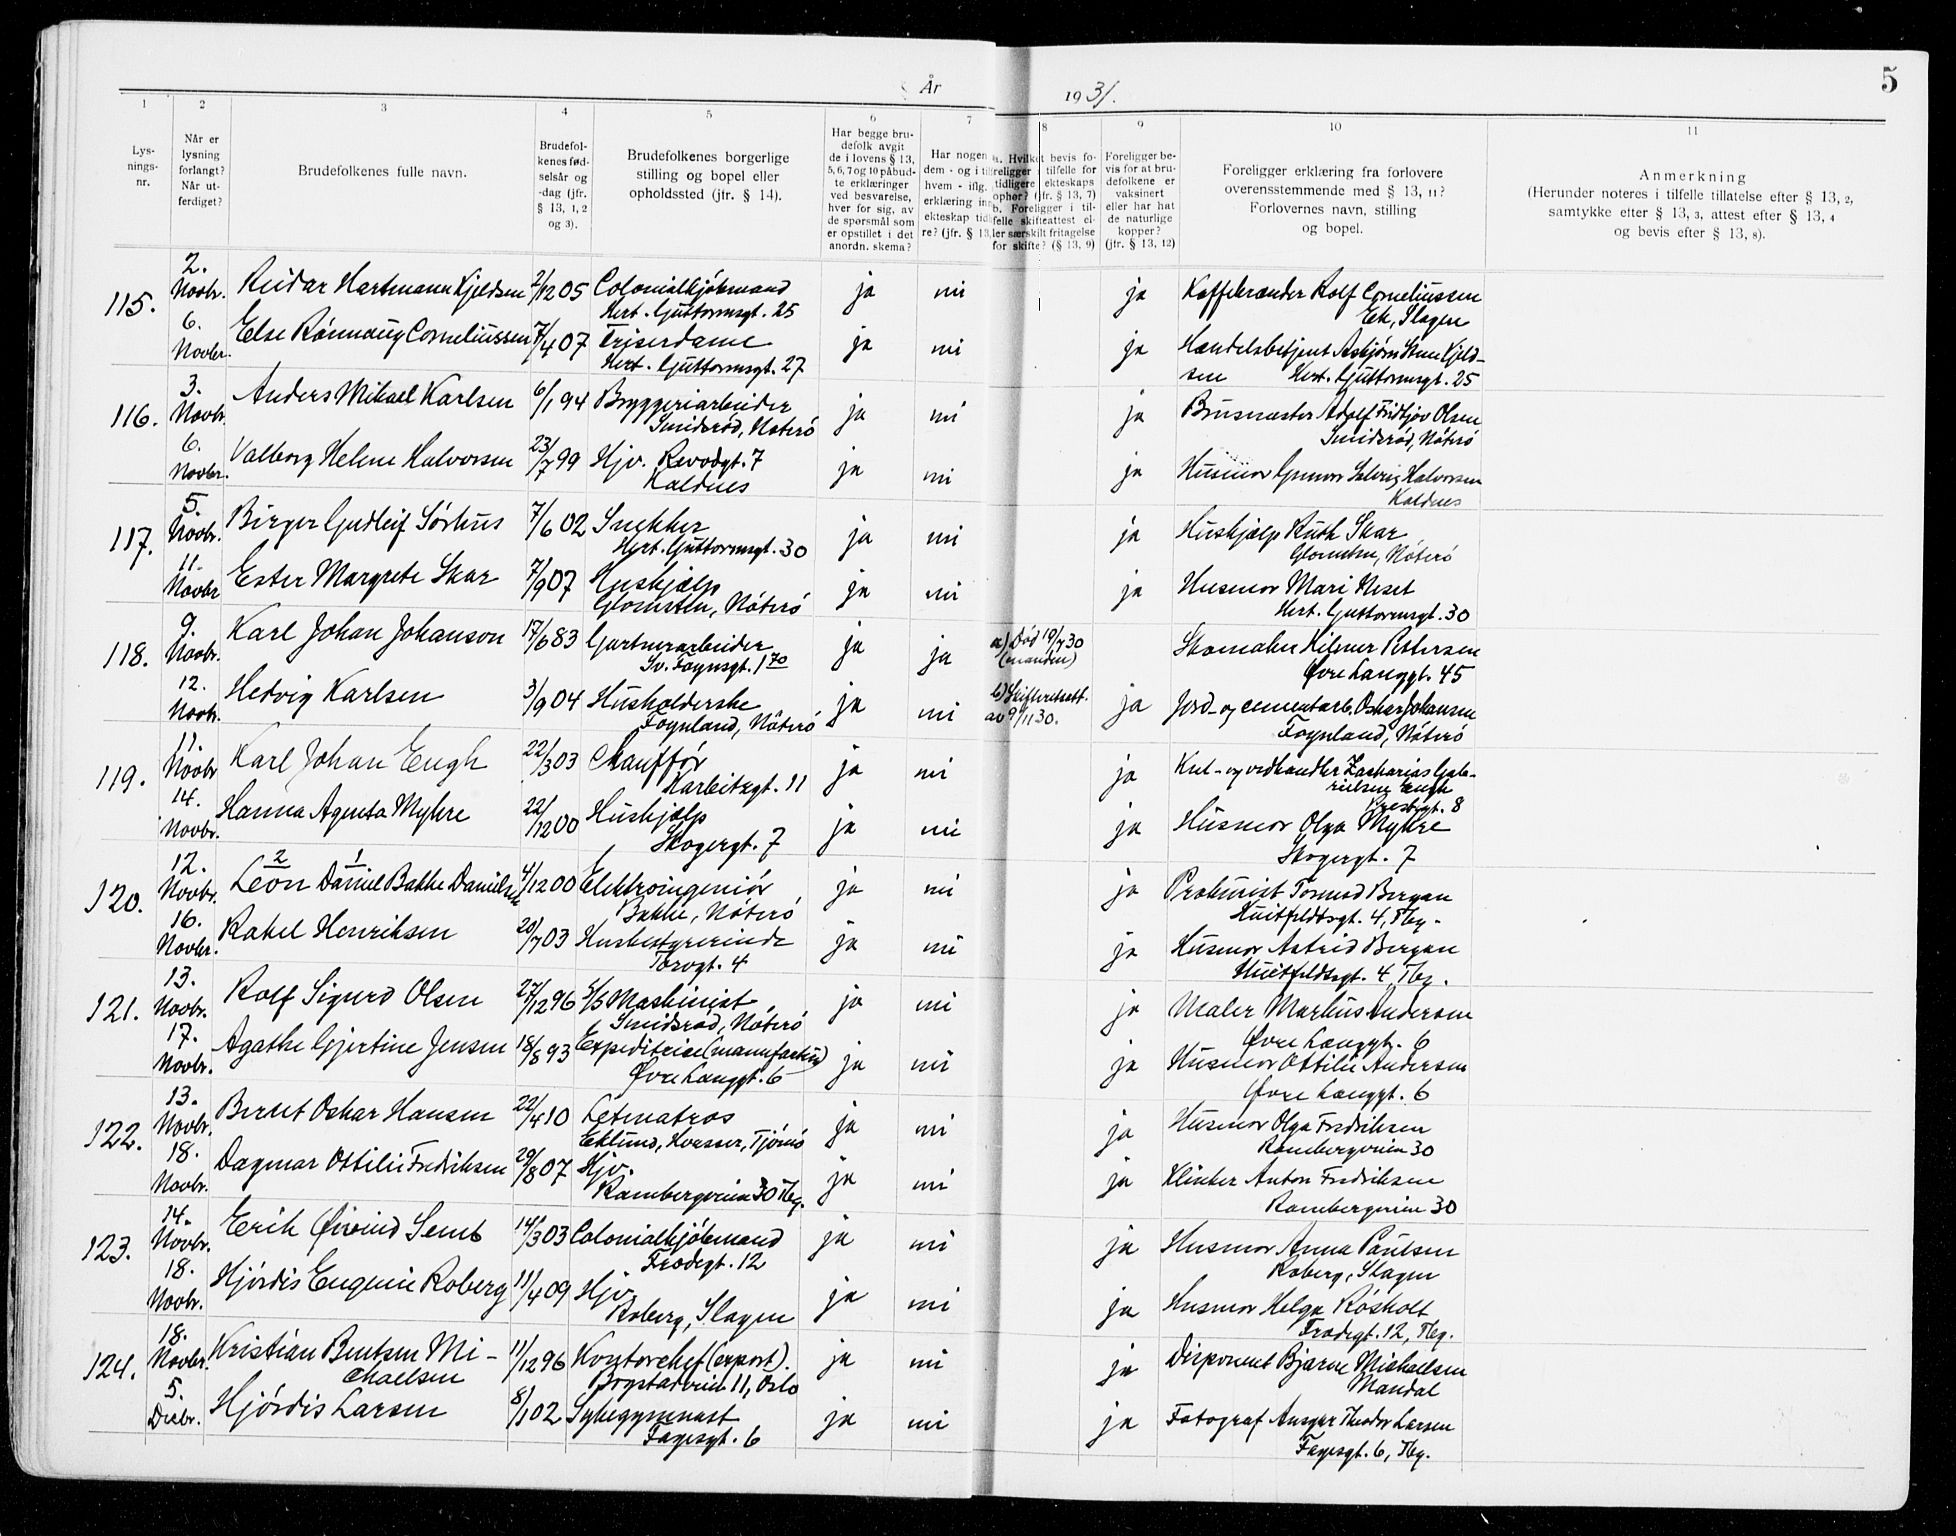 År 1931.
5
1 2 3 4 5 6 7 8 9 10 11
Lys-
nings-
nr.
Når er
lysning
forlangt?
Når ut-
ferdiget?
Brudefolkenes fulle navn.
Brudefol-
kenes fød-
selsår og
-dag (jfr.
§ 13, 1, 2
og 3).
Brudefolkenes borgerlige
stilling og bopel eller
opholdssted (jfr. § 14).
Har begge bru-
defolk avgit
de i lovens § 13,
5, 6, 7 og 10 påbud-
te erklæringer
ved besvarelse,
hver for sig, av
de spørsmål som
er opstillet i det
anordn. skema?
Har nogen
dem - og i til
hvem - iflg.
erklæring inn
ekteskap tid
re? (jfr. § 13,
a. Hvilket bevis fo-
religger i tilfelle for
tidligere ekteskaps
ophør? (jfr. § 13, 7)
b. Foreligger i til-
felle skifteattest el-
ler særskilt fritagelse
for skifte? (§ 13, 9)
Foreligger be-
vis for at bru-
defolkene er
vaksinert
eller har hat
de naturlige
kopper?
(jfr. § 13, 12)
Foreligger erklæring fra forlovere
overensstemmende med § 13, 11?
Forlovernes navn, stilling
og bopel.
Anmerkning
(Herunder noteres i tilfelle tillatelse efter § 13, 2,
samtykke efter § 13, 3, attest efter § 13, 4
og bevis efter § 13, 8).
115. 2. Novbr. Reidar Hartmann Kjeldsen 2/12 05 Colonialkjøbmand ja nei ja Kaffebrænder Rolf Corneliussen
Hert. Guttormsgt. 25 Ek, Slagen
6. Novbr. Else Rønnaug Corneliussen 7/4 07 Friserdame ja nei ja Handelsbetjent Asbjørn Kjeld-
Hert. Guttormsgt. 27 sen Hert. Guttormsgt. 25
116. 3. Novbr. Anders Mikael Karlsen 6/1 94 Bryggeriarbeider ja nei ja Brusmester Adolf Fridtjov Olsen
Smidsrød, Nøterø Smidsrød, Nøterø
6. Novbr. Valborg Helene Halvorsen 23/7 99 Hjv. Rævødgt. 7 ja nei ja Husmor Gunvor Solveig Halvorsen
Kaldnes Kaldnes
117. 5. Novbr. Birger Gudleif Sørhus 7/6 02 Snekker ja nei ja Hushjælp Ruth Skar
Hert. Guttormsgt. 30 Glomsten, Nøterø
11. Novbr Ester Margrete Skar 7/9 07 Hushjælp ja nei ja Husmor Mari Neset
Glomsten, Nøterø Hert. Guttormsgt. 30
118. 9. Novbr. Karl Johan Johanson 17/6 83 Gartnerarbeider ja ja a) Død 19/7 30 Skomaker Hilmer Pettersen
Sv. Foynsgt. 170 (manden) Øvre Langgt. 45
12. Novbr. Hedvig Karlsen 3/9 04 Husholderske ja nei b) Skifteretsatt. ja Jord- og cementarb. Oskar Johansen
Føynland, Nøterø av 9/11 30. Føynland, Nøterø
119. 11. Novbr Karl Johan Engh 22/3 03 Chauffør ja nei ja Kul- og vedhandler Zacharias Gab-
Karbeitsgt. 11 rielsen Engh
Prestegt. 8
14. Novbr. Hanna Agneta Myhre 22/12 00 Hushjælp ja nei ja Husmor Olga Myhre
Skogergt. 7 Skogergt. 7
120. 12. Novbr. 2 Leon 1 Daniel Bakke Danielsen 4/12 00 Elektroingeniør ja nei ja Prokurist Tormod Bergan
Bakke, Nøterø Huitfeldtsgt. 4, Tbg.
16. Novbr. Rakel Henriksen 20/7 03 Husbestyrerinde ja nei ja Husmor Astrid Bergan
Torvgt. 4 Huitfeldtsgt. 4, Tbg.
121. 13. Novbr. Rolf Sigurd Olsen 27/12 96 S/S Maskinist ja nei ja Maler Markus Andersen
Smidsrød, Nøterø Øvre Langgt. 6
17. Novbr. Agathe Gjertine Jensen 18/8 93 Expeditrice (manufaktur) ja nei ja Husmor Ottilie Andersen
Øvre Langgt. 6 Øvre Langgt. 6
122. 13. Novbr. Bernt Oskar Hansen 22/4 10 Letmatros ja nei ja Husmor Olga Fredriksen
Eklund, Tjømø Rambergveien 30
18. Novbr. Dagmar Ottilie Fredriksen 29/8 07 Hjv. ja nei ja Klinker Anton Fredriksen
Rambergveien 30 Tbg. Rambergveien 30
123. 14. Novbr. Erik Øivind Semb 14/3 03 Colonialkjøbmand ja nei ja Husmor Anna Paulsen
Frodegt. 12 Roberg, Slagen
18. Novbr. Hjørdis Eugenie Roberg 11/4 09 Hjv. ja nei ja Husmor Helga Røsholt
Roberg, Slagen Frodegt. 12, Tbg.
124. 18. Novbr. Kristian Bentsen Mi- 11/12 96 Kontorchef (export). ja nei ja Disponent Bjarne Michaelsen
chaelsen Bogstadveien 11, Oslo Mandal
5. Desbr. Hjørdis Larsen 8/1 02 Sykegymnast ja nei ja Fotograf Ansgar Theodor Larsen
Fayesgt. 6 Fayesgt. 6, Tbg.